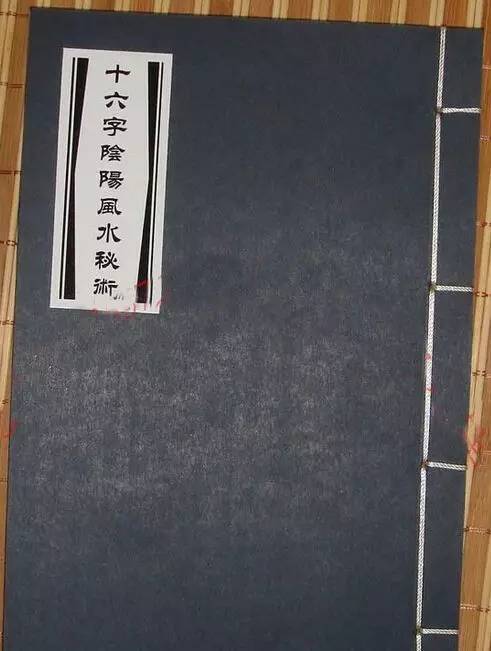 十六字陰陽風水秘術